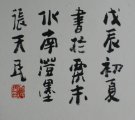 戊辰初夏
書於粟末
水南澄墨
張天民